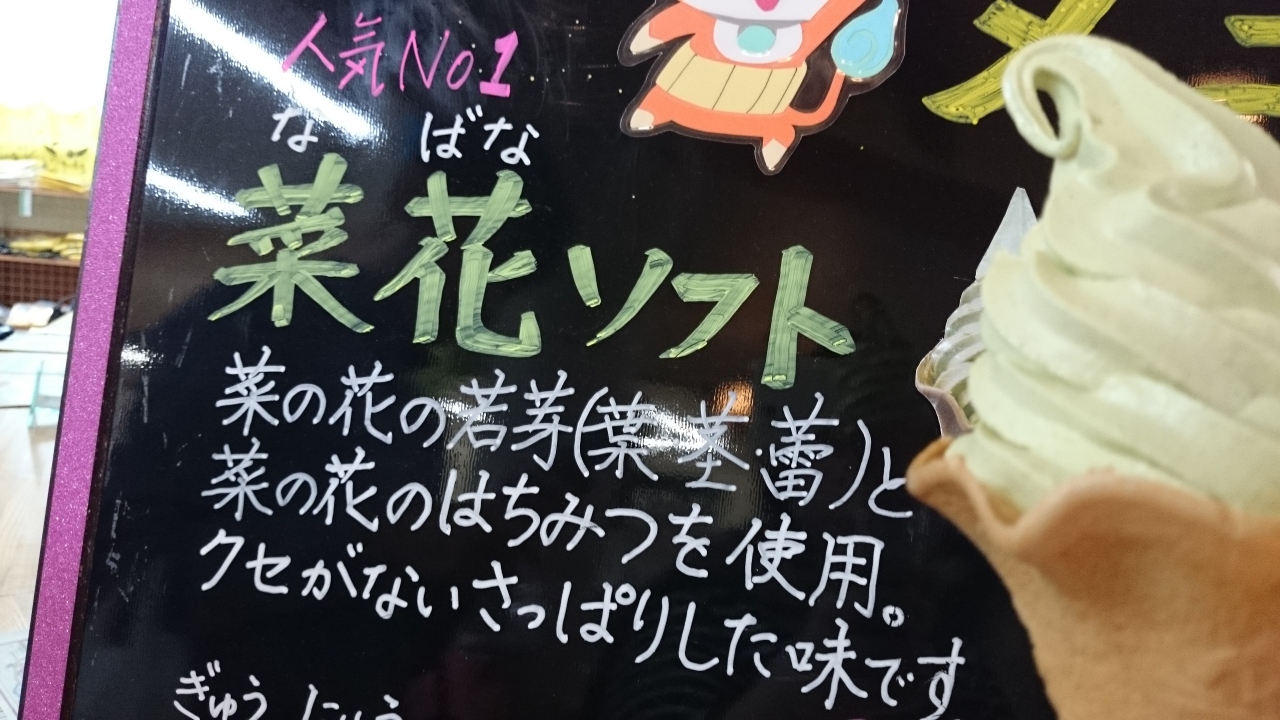 人気No.1
な ばな
菜花ソフト
菜の花の若芽(葉・茎・蕾)と
菜の花のはちみつを使用。
クセがないさっぱりした味です
ぎゅうにゅう